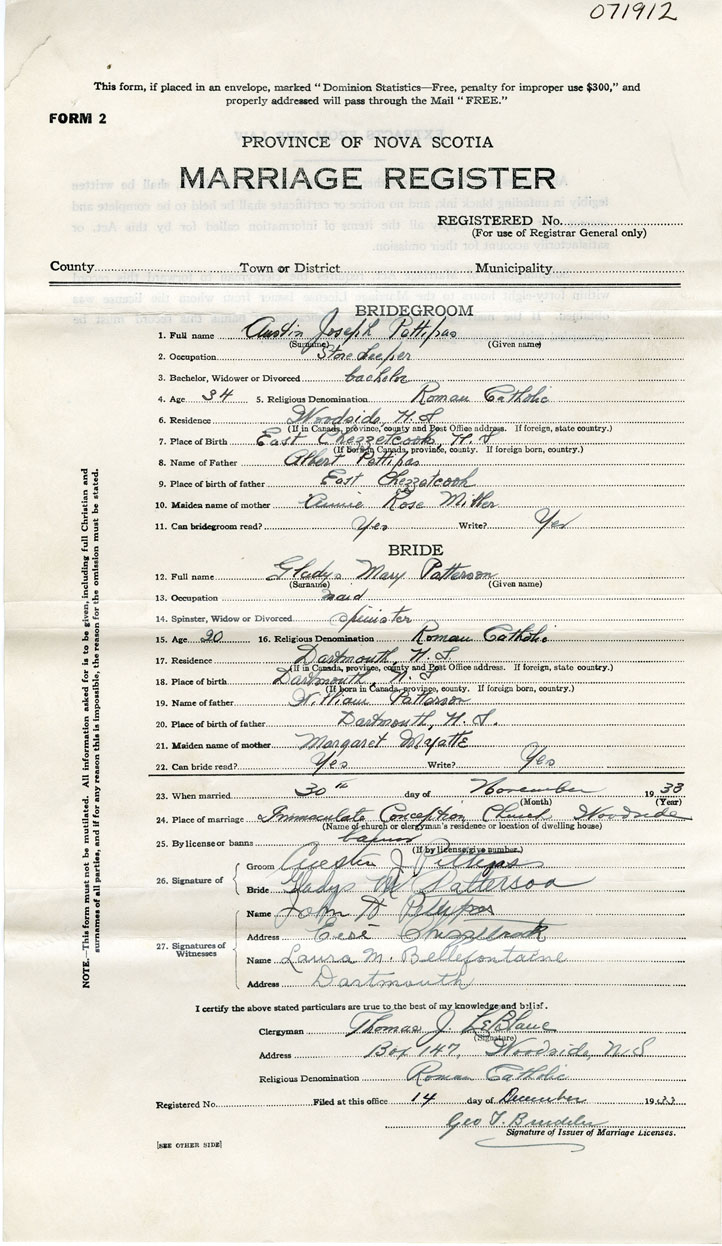 071912
This form, if placed in an envelope, marked "Dominion Statistics—Free, penalty for improper use $300," and
properly addressed will pass through the Mail "FREE."
FORM 2
PROVINCE OF NOVA SCOTIA
MARRIAGE REGISTER
REGISTERED No.
(For use of Registrar General only)
County Town or District Municipality
BRIDEGROOM
1. Full name Austin Joseph Pettipas
(Surname) (Given name)
2. Occupation Store keeper
3. Bachelor, Widower or Divorced bachelor
4. Age 34 5. Religious Denomination Roman Catholic
6. Residence Woodside, N. S
(If in Canada, province, county and Post Office address. If foreign, state country.)
7. Place of Birth East Chezzetcook, N. S
(If born in Canada, province, county. If foreign born, country.)
8. Name of Father Albert Pettipas
9. Place of birth of father East Chezzetcook
10. Maiden name of mother Annie Rose
11. Can bridegroom read? Yes Write? Yes
BRIDE
12. Full name Gladys Mary Patterson
(Surname) (Given name)
13. Occupation maid
14. Spinster, Widow or Divorced spinster
15. Age 20 16. Religious Denomination Roman Catholic
17. Residence Dartmouth, N. S
(If in Canada, province, county and Post Office address. If foreign, state country.)
18. Place of birth Dartmouth, N. S
(If born in Canada, province, county. If foreign born, country.)
19. Name of father William Patterson
20. Place of birth of father Dartmouth, N. S.
21. Maiden name of mother Margaret Myatte
22. Can bride read? Yes Write? Yes
23. When married 30th day of November 1933
(Month) (Year)
24. Place of marriage Immaculate Conception Church Woodside
(Name of church or clergyman's residence or location of dwelling house)
25. By license or banns banns
(If by license, give number.)
26. Signature of
Groom Austin J Pettipas
Bride Gladys M Patterson
27. Signatures of Witnesses
Name John Pettipas
Address Chezzetcook
Name Laura M. Bellefontaine
Address Dartmouth
I certify the above stated particulars are true to the best of my knowledge and belief.
Clergyman Thomas J. LeBlanc
(Signature)
Address Box 147, Woodside, N S
Religious Denomination Roman Catholic
Registered No. Filed at this office 14 day of December 1933
Geo T.
Signature of Issuer of Marriage Licenses.
[SEE OTHER SIDE]
NOTE.—This form must not be mutilated. All information asked for is to be given, including full Christian and
surnames of all parties, and if for any reason this is impossible, the reason for the omission must be stated.